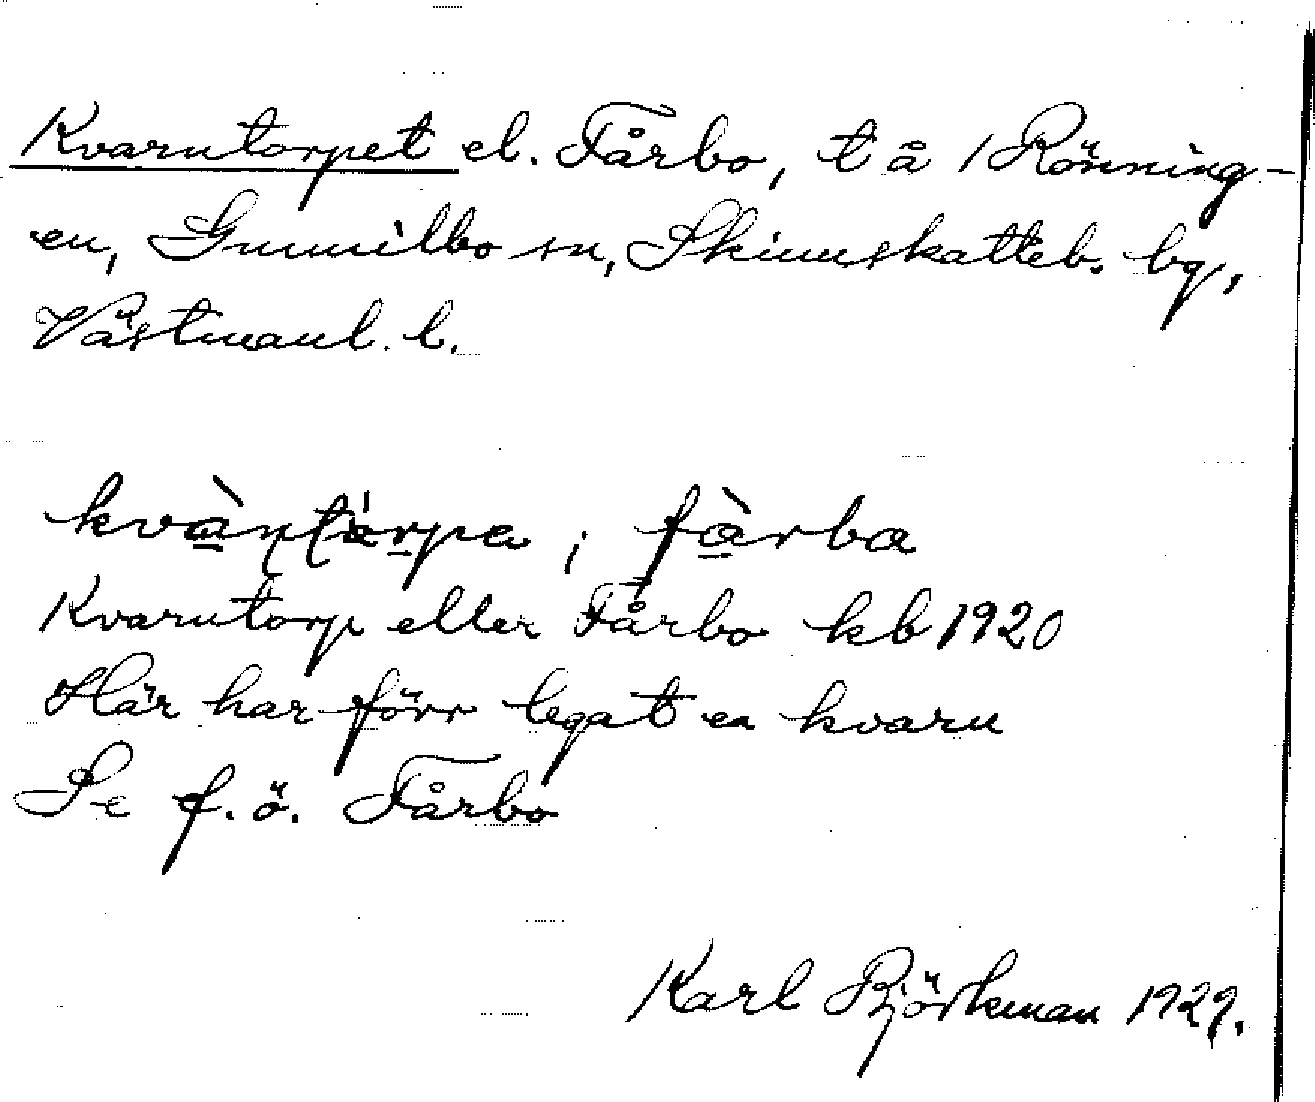 Kvarntorpet el. Fårbo, t å 1 Rönning-
en, Gunnilbo sn, Skinnskatteb. bg,
Västmanl. l.
kvàntàrpa; fàrba
Kvarntorp eller Fårbo kb 1920
Här har förr legat en kvarn
Se f. ö. Fårbo
Karl Björkman 1929.